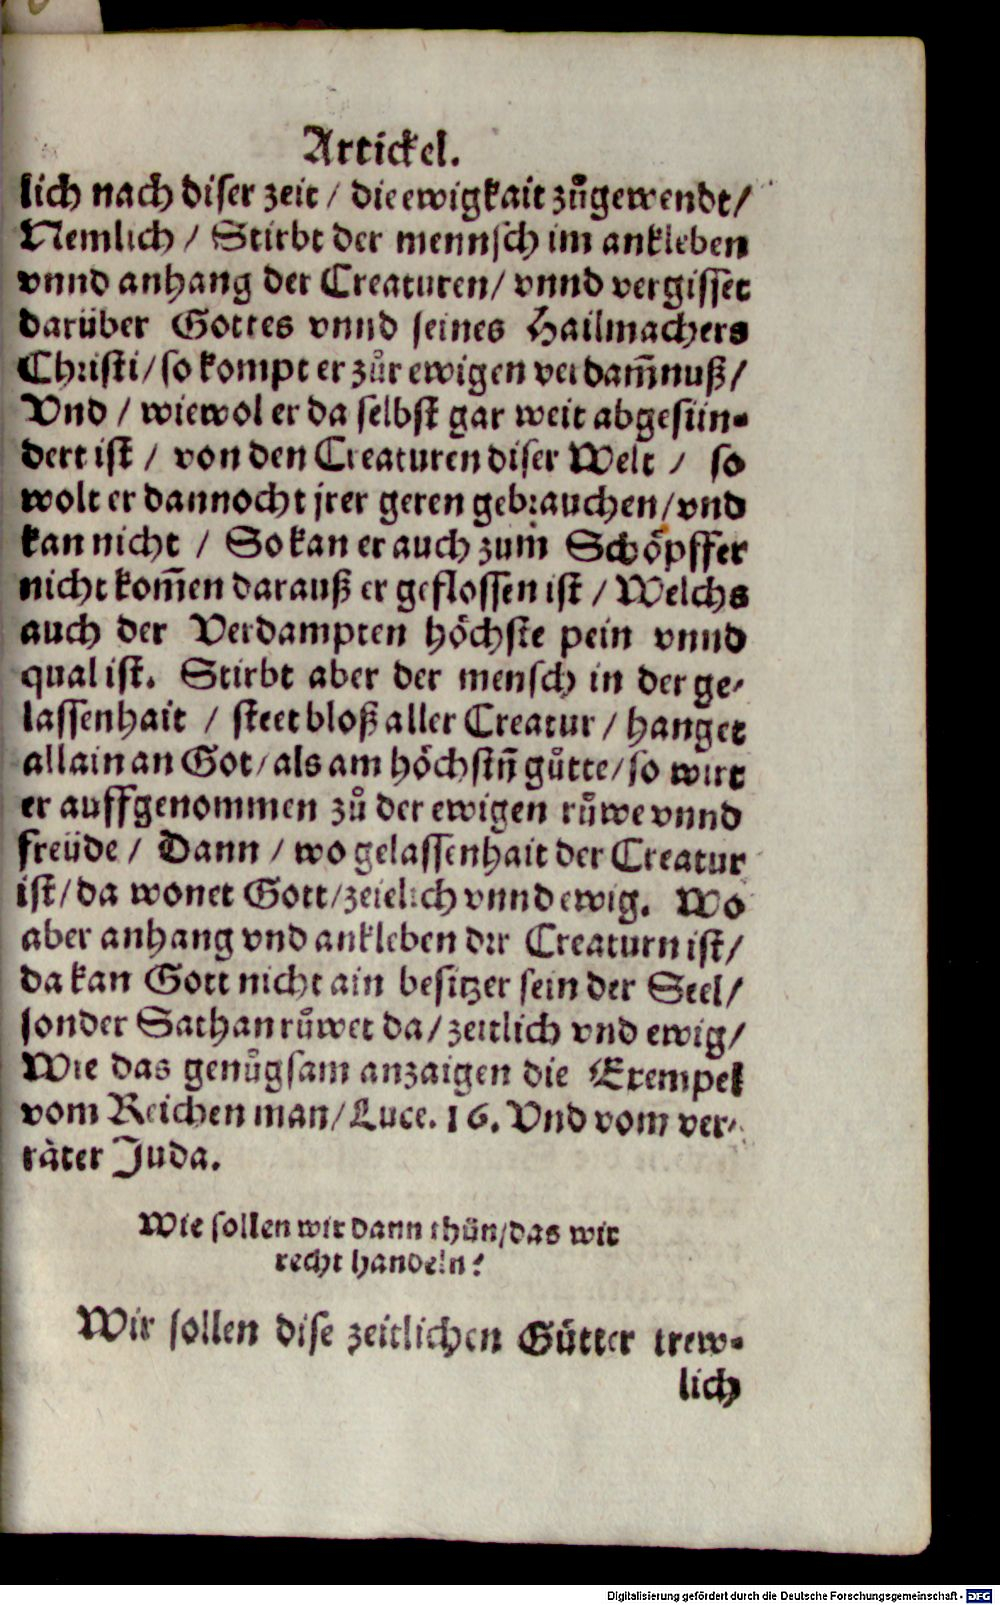 Artickel.
lich nach diser zeit / die ewigkait zůgewendt /
Nemlich / Stirbt der mennsch im ankleben
vnnd anhang der Creaturen / vnnd vergisset
darüber Gottes vnnd seines Hailmachers
Christi / so kompt er zůr ewigen verdam̃nuß /
Vnd / wiewol er da selbst gar weit abgesün-
dert ist / von den Creaturen diser Welt / so
wolt er dannocht jrer geren gebrauchen / vnd
kan nicht / So kan er auch zum Schöpffer
nicht kom̃en darauß er geflossen ist / Welchs
auch der Verdampten höchste pein vnnd
qual ist. Stirbt aber der mensch in der ge-
lassenhait / steet bloß aller Creatur / hanget
allain an Got / als am höchstñ gůtte / so wirt
er auffgenommen zů der ewigen růwe vnnd
freüde / Dann / wo gelassenhait der Creatur
ist / da wonet Gott / zeitlich vnnd ewig. Wo
aber anhang vnd ankleben der Creaturn ist /
da kan Gott nicht ain besitzer sein der Seel /
sonder Sathan růwet da / zeitlich vnd ewig /
Wie das genůgsam anzaigen die Exempel
vom Reichen man / Luce. 16. Vnd vom ver-
räter Juda.
Wie sollen wir dann thůn / das wir
recht handeln?
Wir sollen dise zeitlichen Gůtter trew-
lich
Digitalisierung gefördert durch die Deutsche Forschungsgemeinschaft - DFG